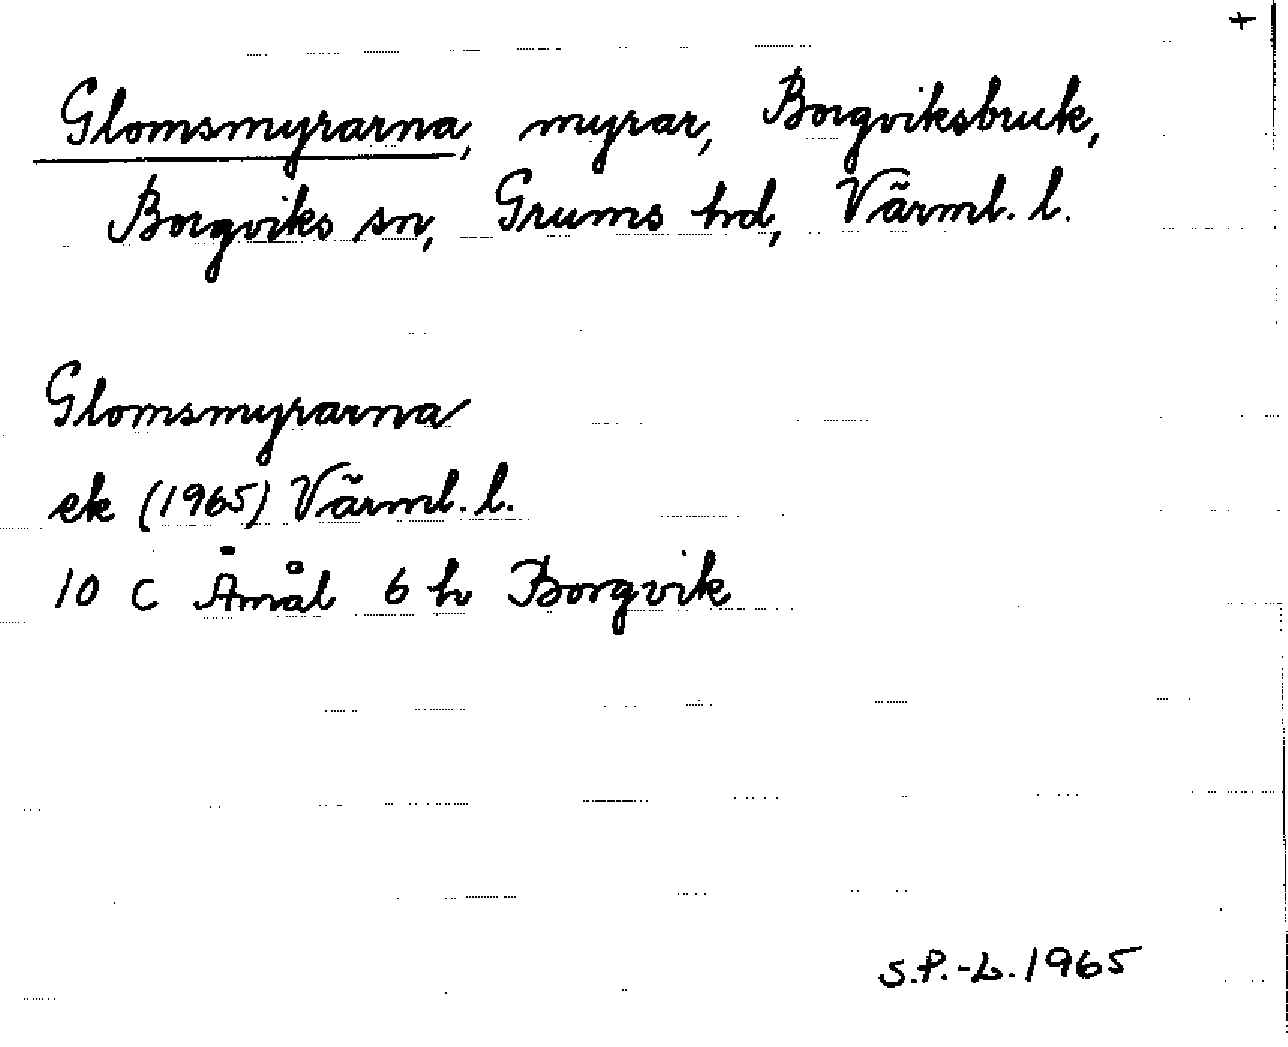 +
Glomsmyrarna, myrar, Borgviksbruk,
Borgviks sn, Grums hd, Värml. l.
Glomsmyrarna
ek (1965) Värml. l.
10 C Åmål 6 h Borgvik
S.P.-L. 1965